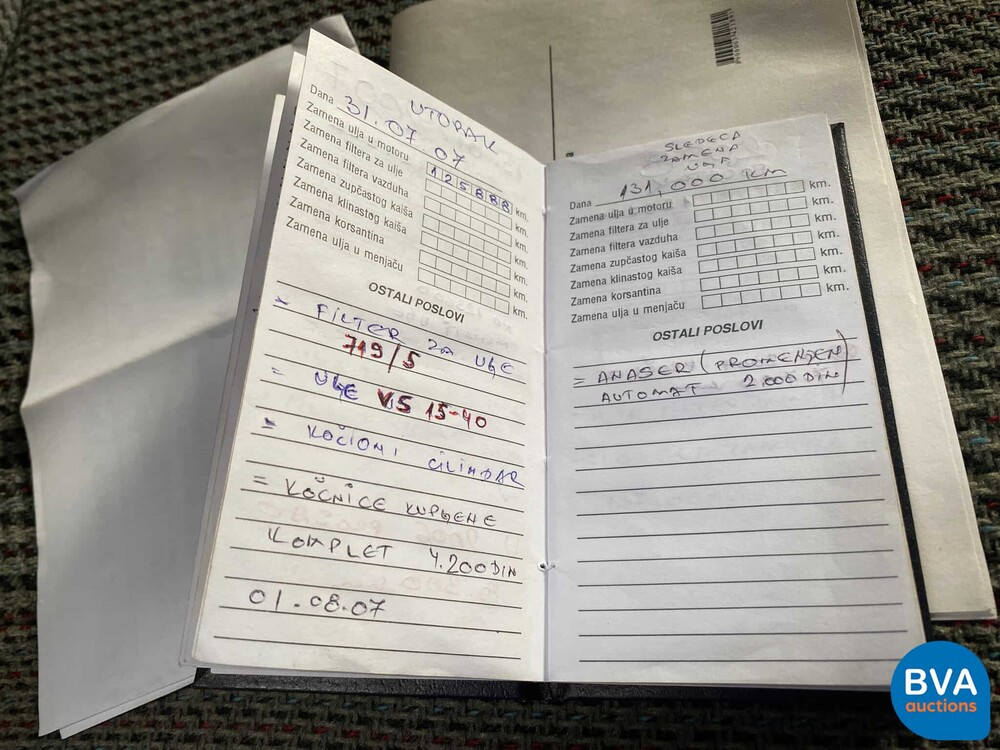 UTORAK
Dana 31.07.07
Zamena ulja u motoru 125888 km.
Zamena filtera za ulje km.
Zamena filtera vazduha km.
Zamena zupčastog kaiša km.
Zamena klinastog kaiša km.
Zamena korsantina km.
Zamena ulja u menjaču km.
OSTALI POSLOVI
= FILTER ZA UљE
719/5
= UљE VS 15-40
= KOČIONI CILINDAR
= KOČNICE KUPљENE
KOMPLET 4.200 DIN
01.08.07
SLEDEĆA
ZAMENA
UљA
Dana 131,000 KM
Zamena ulja u motoru km.
Zamena filtera za ulje km.
Zamena filtera vazduha km.
Zamena zupčastog kaiša km.
Zamena klinastog kaiša km.
Zamena korsantina km.
Zamena ulja u menjaču km.
OSTALI POSLOVI
= ANASER (PROMENJEN)
AUTOMAT 2.000 DIN
BVA
auctions